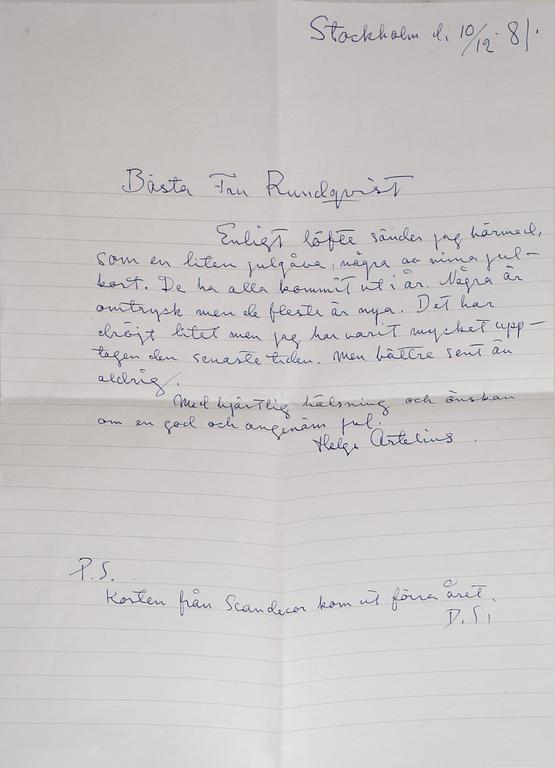 Stockholm d. 10/12. 81.
Bästa Fru Rundqvist
Enligt löfte sänder jag härmed,
som en liten julgåva, några av mina jul-
kort. De ha alla kommit ut i år. Några är
omtryk men de fleste är nya. Det har
dröjt litet men jag har varit mycket upp-
tagen den senaste tiden. Men bättre sent än
aldrig.
Med hjärtlig hälsning och önskan
om en god och angenäm jul.
Helge Artelius.
P.S.
Korten från Scandecor kom ut förra året.
D.S.